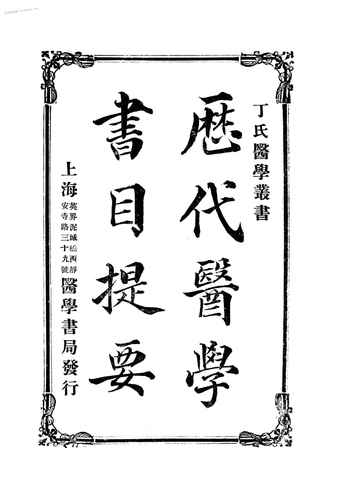 丁氏醫學叢書
歷代醫學
書目提要
上海英界泥城橋西靜安寺路三十九號醫學書局發行